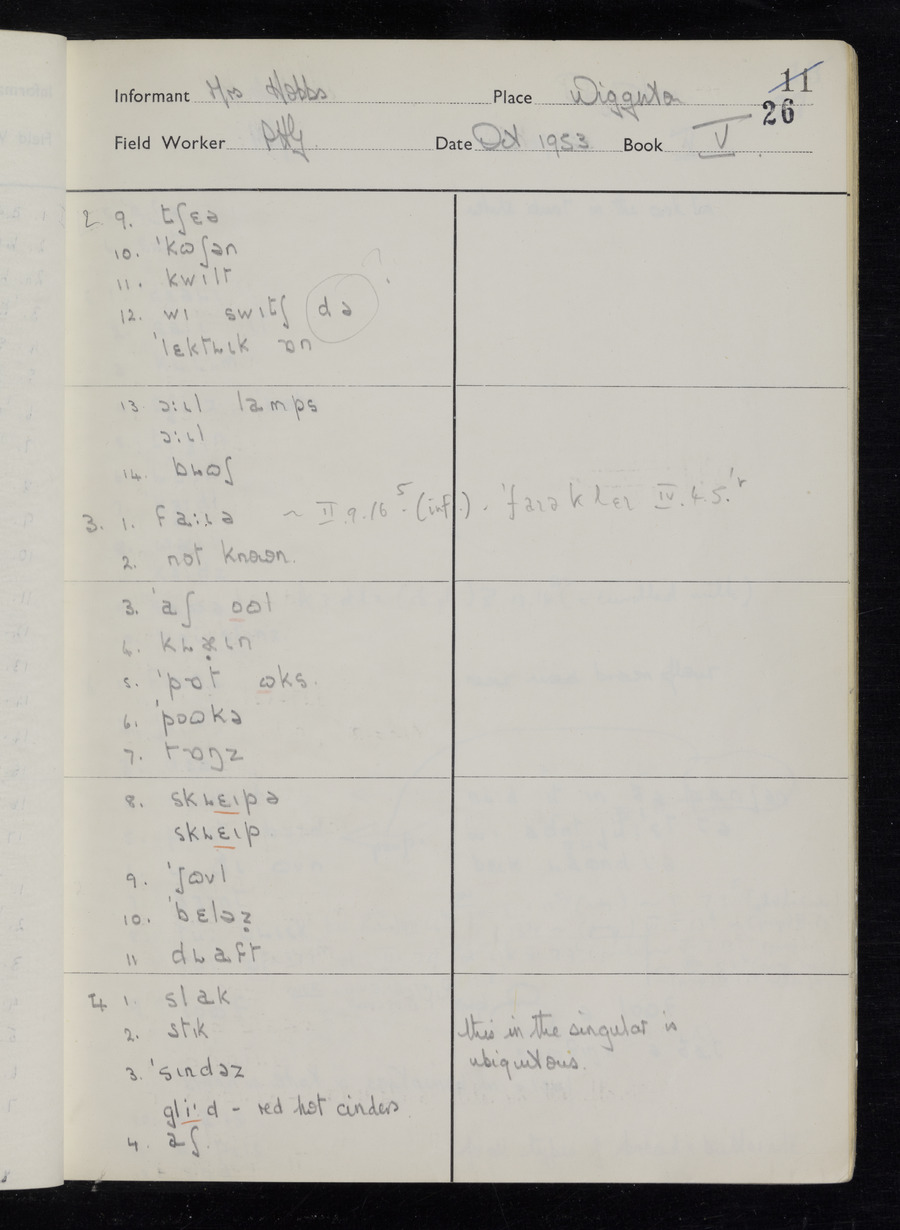 Informant Mrs Hobbs Place Wigginton 11
26
Field Worker Date Oct 1953 Book V
2 9. tʃɛə
10. ˈkɷʃən
11. kwɪlt
12. wɪ swɪtʃ də
ˈlɛktɹɪk ɒn
13. ɔːɩl lamps
ɔːɩl
14. bɹɷʃ
3. 1. faːɪə ~ II.9.16⁵. (inf.).
2. not known.
3. ˈaʃ oɷl
4.
5. ˈpɒt ɷks.
6. ˈpoɷkə
7. tɒŋz
8. skɹɛɪpə
skɹɛɪp
9. ˈʃɷvl
10. ˈbɛləz̥
11 dɹaft
4 1. slak
2. stɪk this in the singular is
ubiquitous.
3. ˈsɪndəz
gliːd – red hot cinders
4. aʃ.